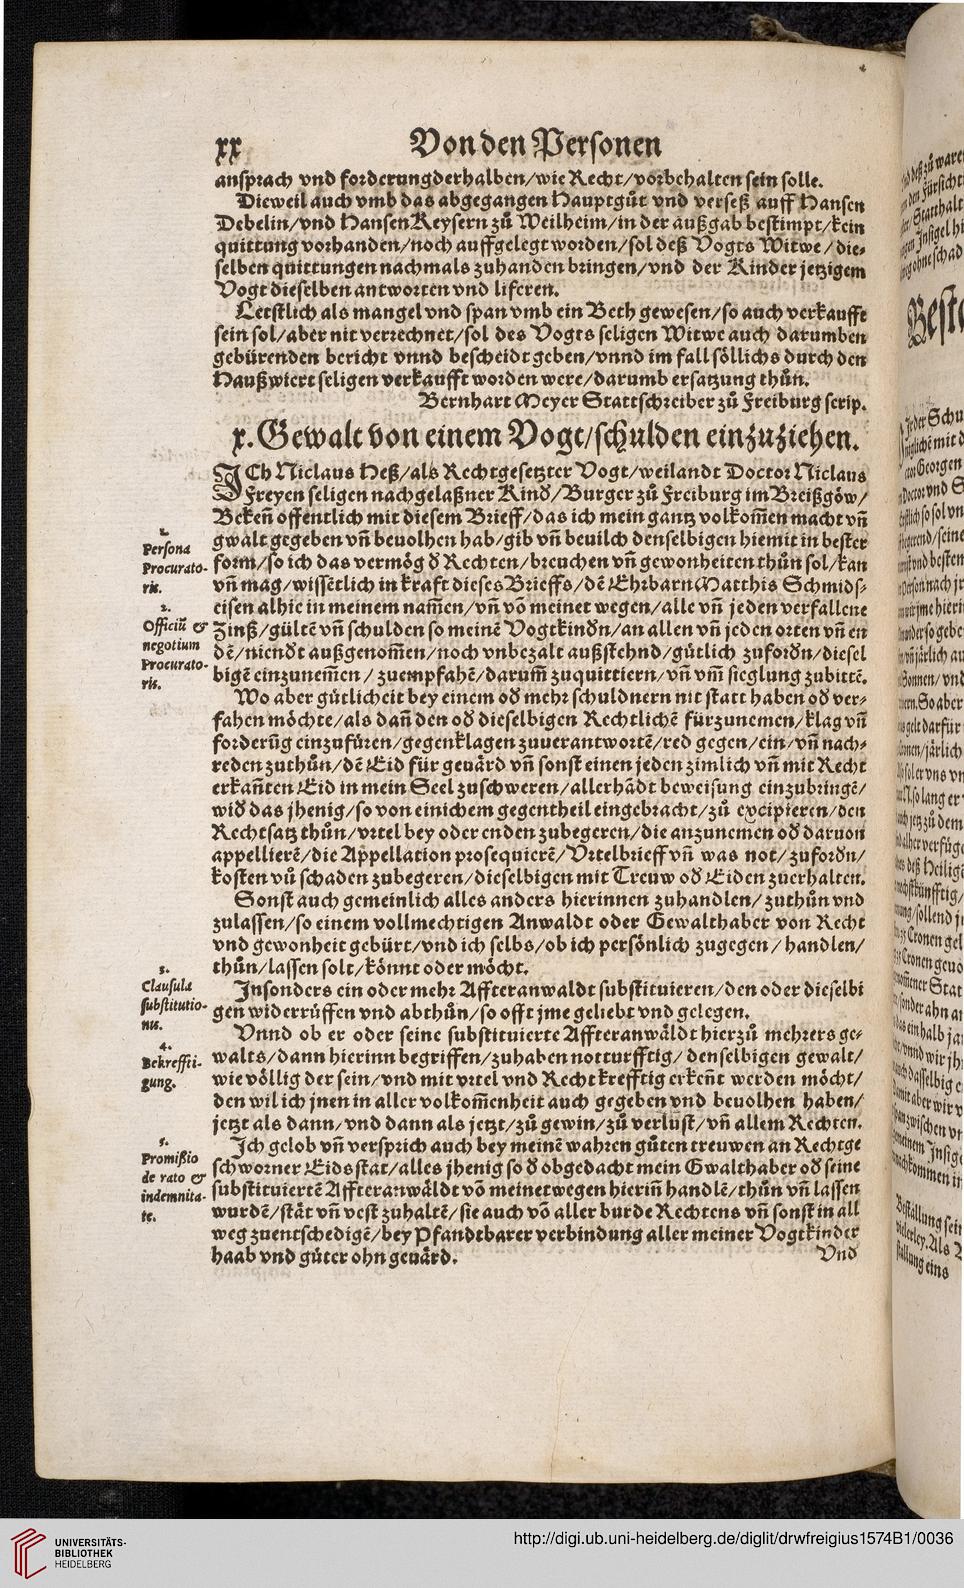 xx Von den Personen
ansprach vnd forderung derhalben/wie Recht/vorbehalten sein solle.
Dieweil auch vmb das abgegangen Hauptgůt vnd verseß auff Hansen
Debelin/vnd Hansen Keysern zů Weilheim/in der außgab bestimpt/kein
quittung vorhanden/noch auffgelegt worden/sol deß Vogts Witwe/die-
selben quittungen nachmals zuhanden bringen/vnd der Kinder jetzigem
Vogt dieselben antworten vnd liferen.
Letstlich als mangel vnd span vmb ein Beth gewesen/so auch verkaufft
sein sol/aber nit verrechnet/sol des Vogts seligen Witwe auch darumben
gebürenden bericht vnnd bescheidt geben/vnnd im fall söllichs durch den
Haußwiert seligen verkaufft worden were/darumb ersatzung thůn.
Bernhart Meyer Stattschreiber zů Freiburg scrip.
x. Gewalt von einem Vogt/schulden einzuziehen.
ICh Niclaus Heß/als Rechtgesetzter Vogt/weilandt Doctor Niclaus
Freyen seligen nachgelaßner Kind/Burger zů Freiburg im Breißgöw/
Bekeñ offentlich mit diesem Brieff/das ich mein gantz volkom̃en macht vñ
gwalt gegeben vñ beuolhen hab/gib vñ beuilch denselbigen hiemit in bester
form/so ich das vermög d̕ Rechten/breuchen vñ gewonheiten thůn sol/kan
vñ mag/wissẽtlich in kraft dieses Brieffs/dẽ Ehrbarn Matthis Schmids-
eisen alhie in meinem nam̃en/vñ võ meinet wegen/alle vñ jeden verfallene
Zinß/gültẽ vñ schulden so meinẽ Vogtkindn/an allen vñ jeden orten vñ en
dẽ/niendt außgenom̃en/noch vnbezalt außstehnd/gütlich zufordn/diesel
bigẽ einzunem̃en/zuempfahẽ/darum̃ zuquittiern/vñ vm̃ sieglung zubittẽ.
Wo aber gütlicheit bey einem od̕ mehr schuldnern nit statt haben od̕ ver-
fahen möchte/als dañ den od̕ dieselbigen Rechtlichẽ fürzunemen/klag vñ
forderũg einzufüren/gegenklagen zuuerantwortẽ/red gegen/ein/vñ nach-
reden zuthůn/dẽ Eid für geuärd vñ sonst einen jeden zimlich vñ mit Recht
erkañten Eid in mein Seel zuschweren/allerhãdt beweisung einzubringẽ/
wid̕ das jhenig/so von einichem gegentheil eingebracht/zů excipieren/den
Rechtsatz thůn/vrtel bey oder enden zubegeren/die anzunemen od̕ daruon
appellierẽ/die Appellation prosequierẽ/Vrtelbrieff vñ was not/zufordn/
kosten vñ schaden zubegeren/dieselbigen mit Treuw od̕ Eiden zuerhalten.
Sonst auch gemeinlich alles anders hierinnen zuhandlen/zuthůn vnd
zulassen/so einem vollmechtigen Anwaldt oder Gewalthaber von Recht
vnd gewonheit gebürt/vnd ich selbs/ob ich persönlich zugegen/handlen/
thůn/lassen solt/könnt oder möcht.
Insonders ein oder mehr Affteranwaldt substituieren/den oder dieselbi
gen widerrüffen vnd abthůn/so offt jme geliebt vnd gelegen.
Vnnd ob er oder seine substituierte Affteranwäldt hierzů mehrers ge-
walts/dann hierinn begriffen/zuhaben notturfftig/denselbigen gewalt/
wie völlig der sein/vnd mit vrtel vnd Recht krefftig erkeñt werden möcht/
den wil ich jnen in aller volkom̃enheit auch gegeben vnd beuolhen haben/
jetzt als dann/vnd dann als jetzt/zů gewin/zů verlust/vñ allem Rechten.
Ich gelob vñ versprich auch bey meinẽ wahren gůten treuwen an Rechtge
schworner Eidsstat/alles jhenig so d̕ obgedacht mein Gwalthaber od̕ seine
substituiertẽ Affteranwäldt võ meinetwegen hieriñ handlẽ/thůn vñ lassen
wurdẽ/stät vñ vest zuhaltẽ/sie auch võ aller burde Rechtens vñ sonst in all
weg zuentschedigẽ/bey Pfandtbarer verbindung aller meiner Vogtkinder
haab vnd güter ohn geuärd.
Vnd
1.
Persona
Procurato-
ris.
2.
Officiũ &
negotium
Procurato-
ris.
3.
Clausula
substitutio-
nis.
4.
Bekreffti-
gung.
5.
Promißio
de rato &
indemnita-
te.
UNIVERSITÄTS-
BIBLIOTHEK
HEIDELBERG
http://digi.ub.uni-heidelberg.de/diglit/drwfreigius1574B1/0036